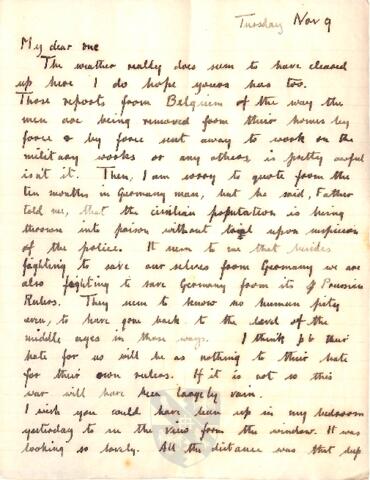 Tuesday Nov 9
My dear one
The weather really does seem to have cleared
up here I do hope yours has too.
Those reports from Belgium of the way the
men are being removed from their homes by
force & by force sent away to work on the
military works or any others, is pretty awful
isn't it. Then, I am sorry to quote from the
ten months in Germany man, but he said, Father
told me, that the civilian population is being
thrown into prison without trial upon suspicion
of the police. It seem to me that besides
fighting to save our selves from Germany we are
also fighting to save Germany from its Prussian
Rulers. They seem to know no human pity
even, to have gone back to the level of the
middle ages in these ways. I think their
hate for us will be as nothing to their hate
for their own rulers. If it is not so this
war will have been largely vain.
I wish you could have been up in my bedroom
yesterday to see the view from the window. It was
looking so lovely. All the distance was that deep